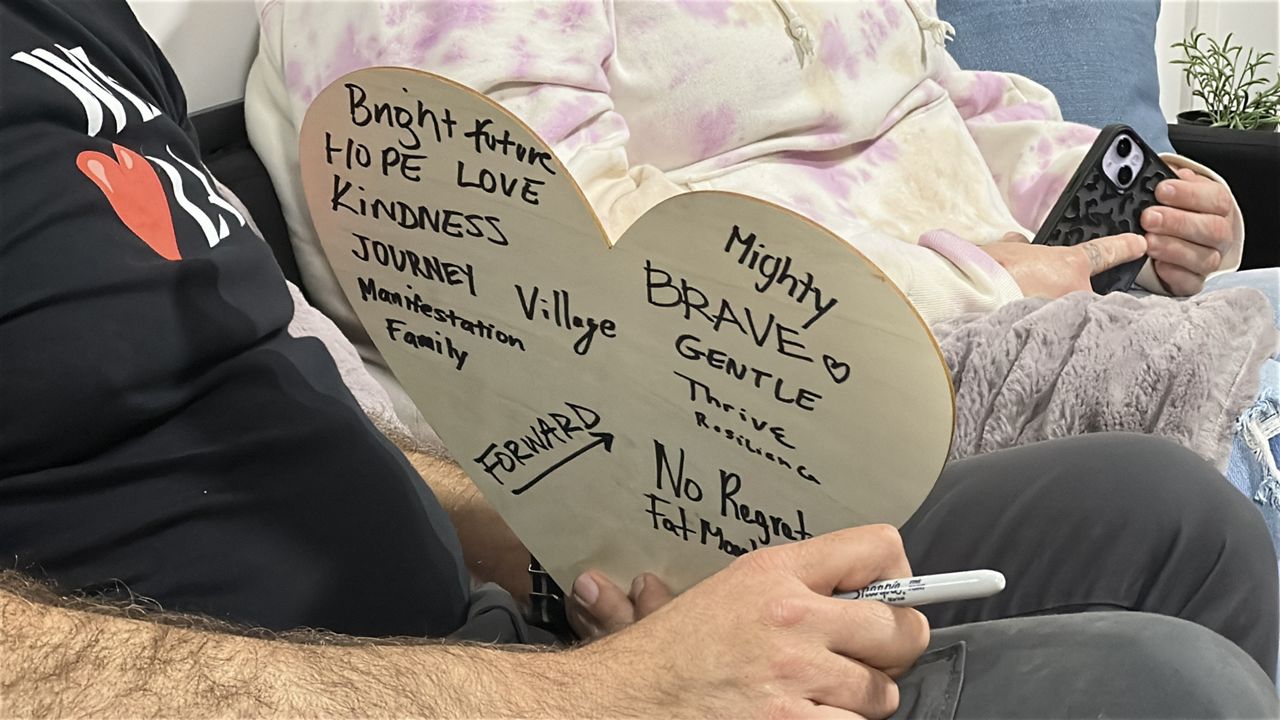 Bright future
HOPE LOVE
KiNDNESS
JOURNEY
Village
Manifestation
Family
FORWARD
Mighty
BRAVE
GENTLE
Thrive
Resilience
No Regret
Fat
Sharpie